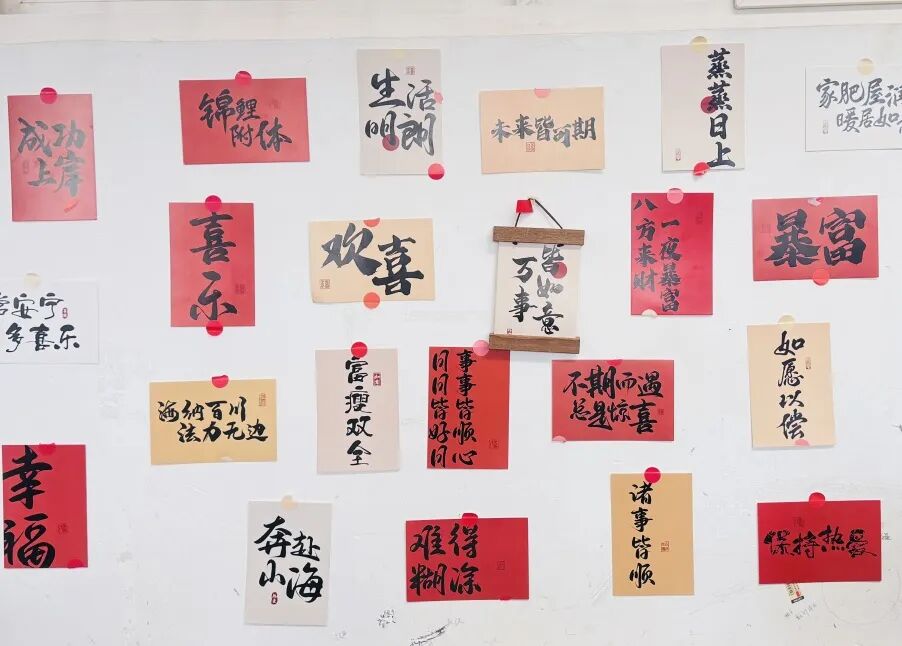 成功
上岸
锦鲤
附体
生活
明朗
未来皆可期
蒸蒸日上
家肥屋润
暖居如
喜乐
欢喜
万事
皆如意
一夜暴富
八方来财
暴富
安宁
多喜乐
海纳百川
法力无边
富瘦双全
事事皆顺心
日日皆好日
不期而遇
总是惊喜
如愿以偿
幸福
奔赴
山海
难得
糊涂
诸事皆顺
保持热爱